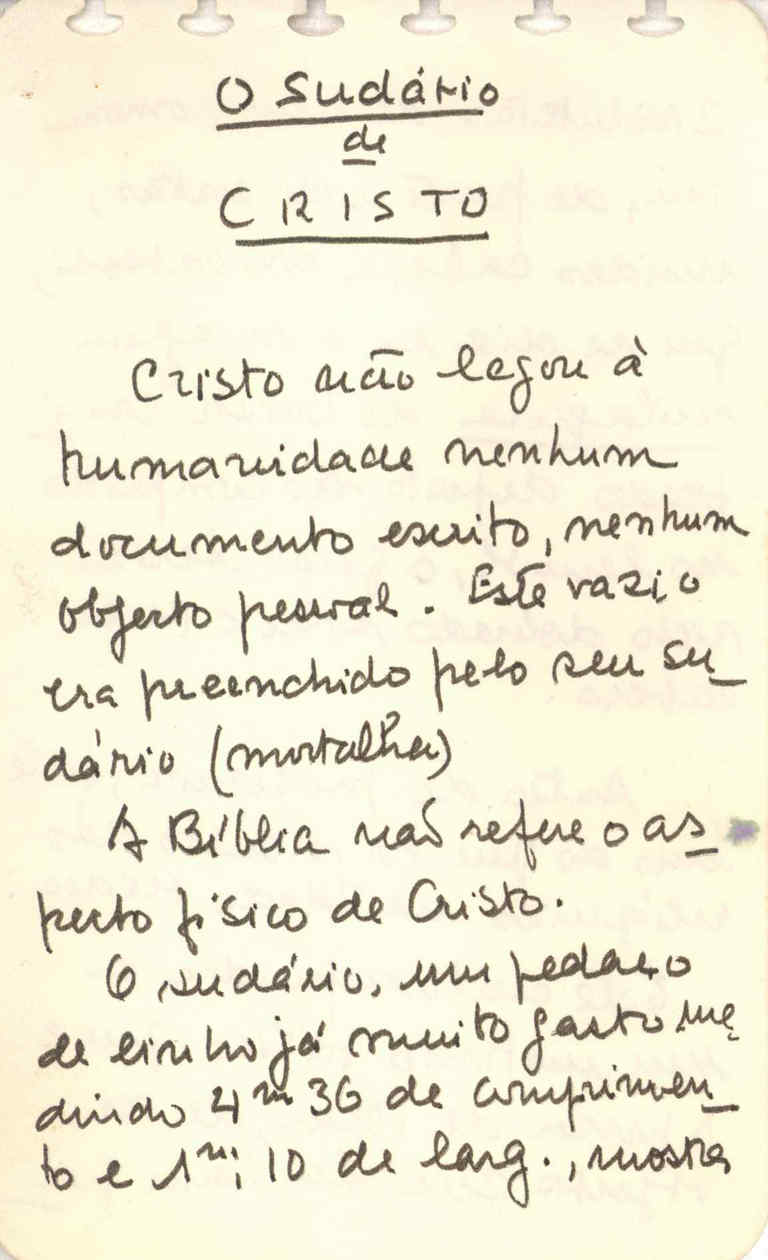 O Sudário
de
CRISTO
Cristo não legou à
humanidade nenhum
documento escrito, nenhum
objecto pessoal. Este vazio
era preenchido pelo seu su_
dário (mortalha)
A Bíblia não refere o as_
pecto físico de Cristo.
O sudário, um pedaço
de linho já muito gasto me_
dindo 4m 36 de comprimen_
to e 1m, 10 de larg., mostra